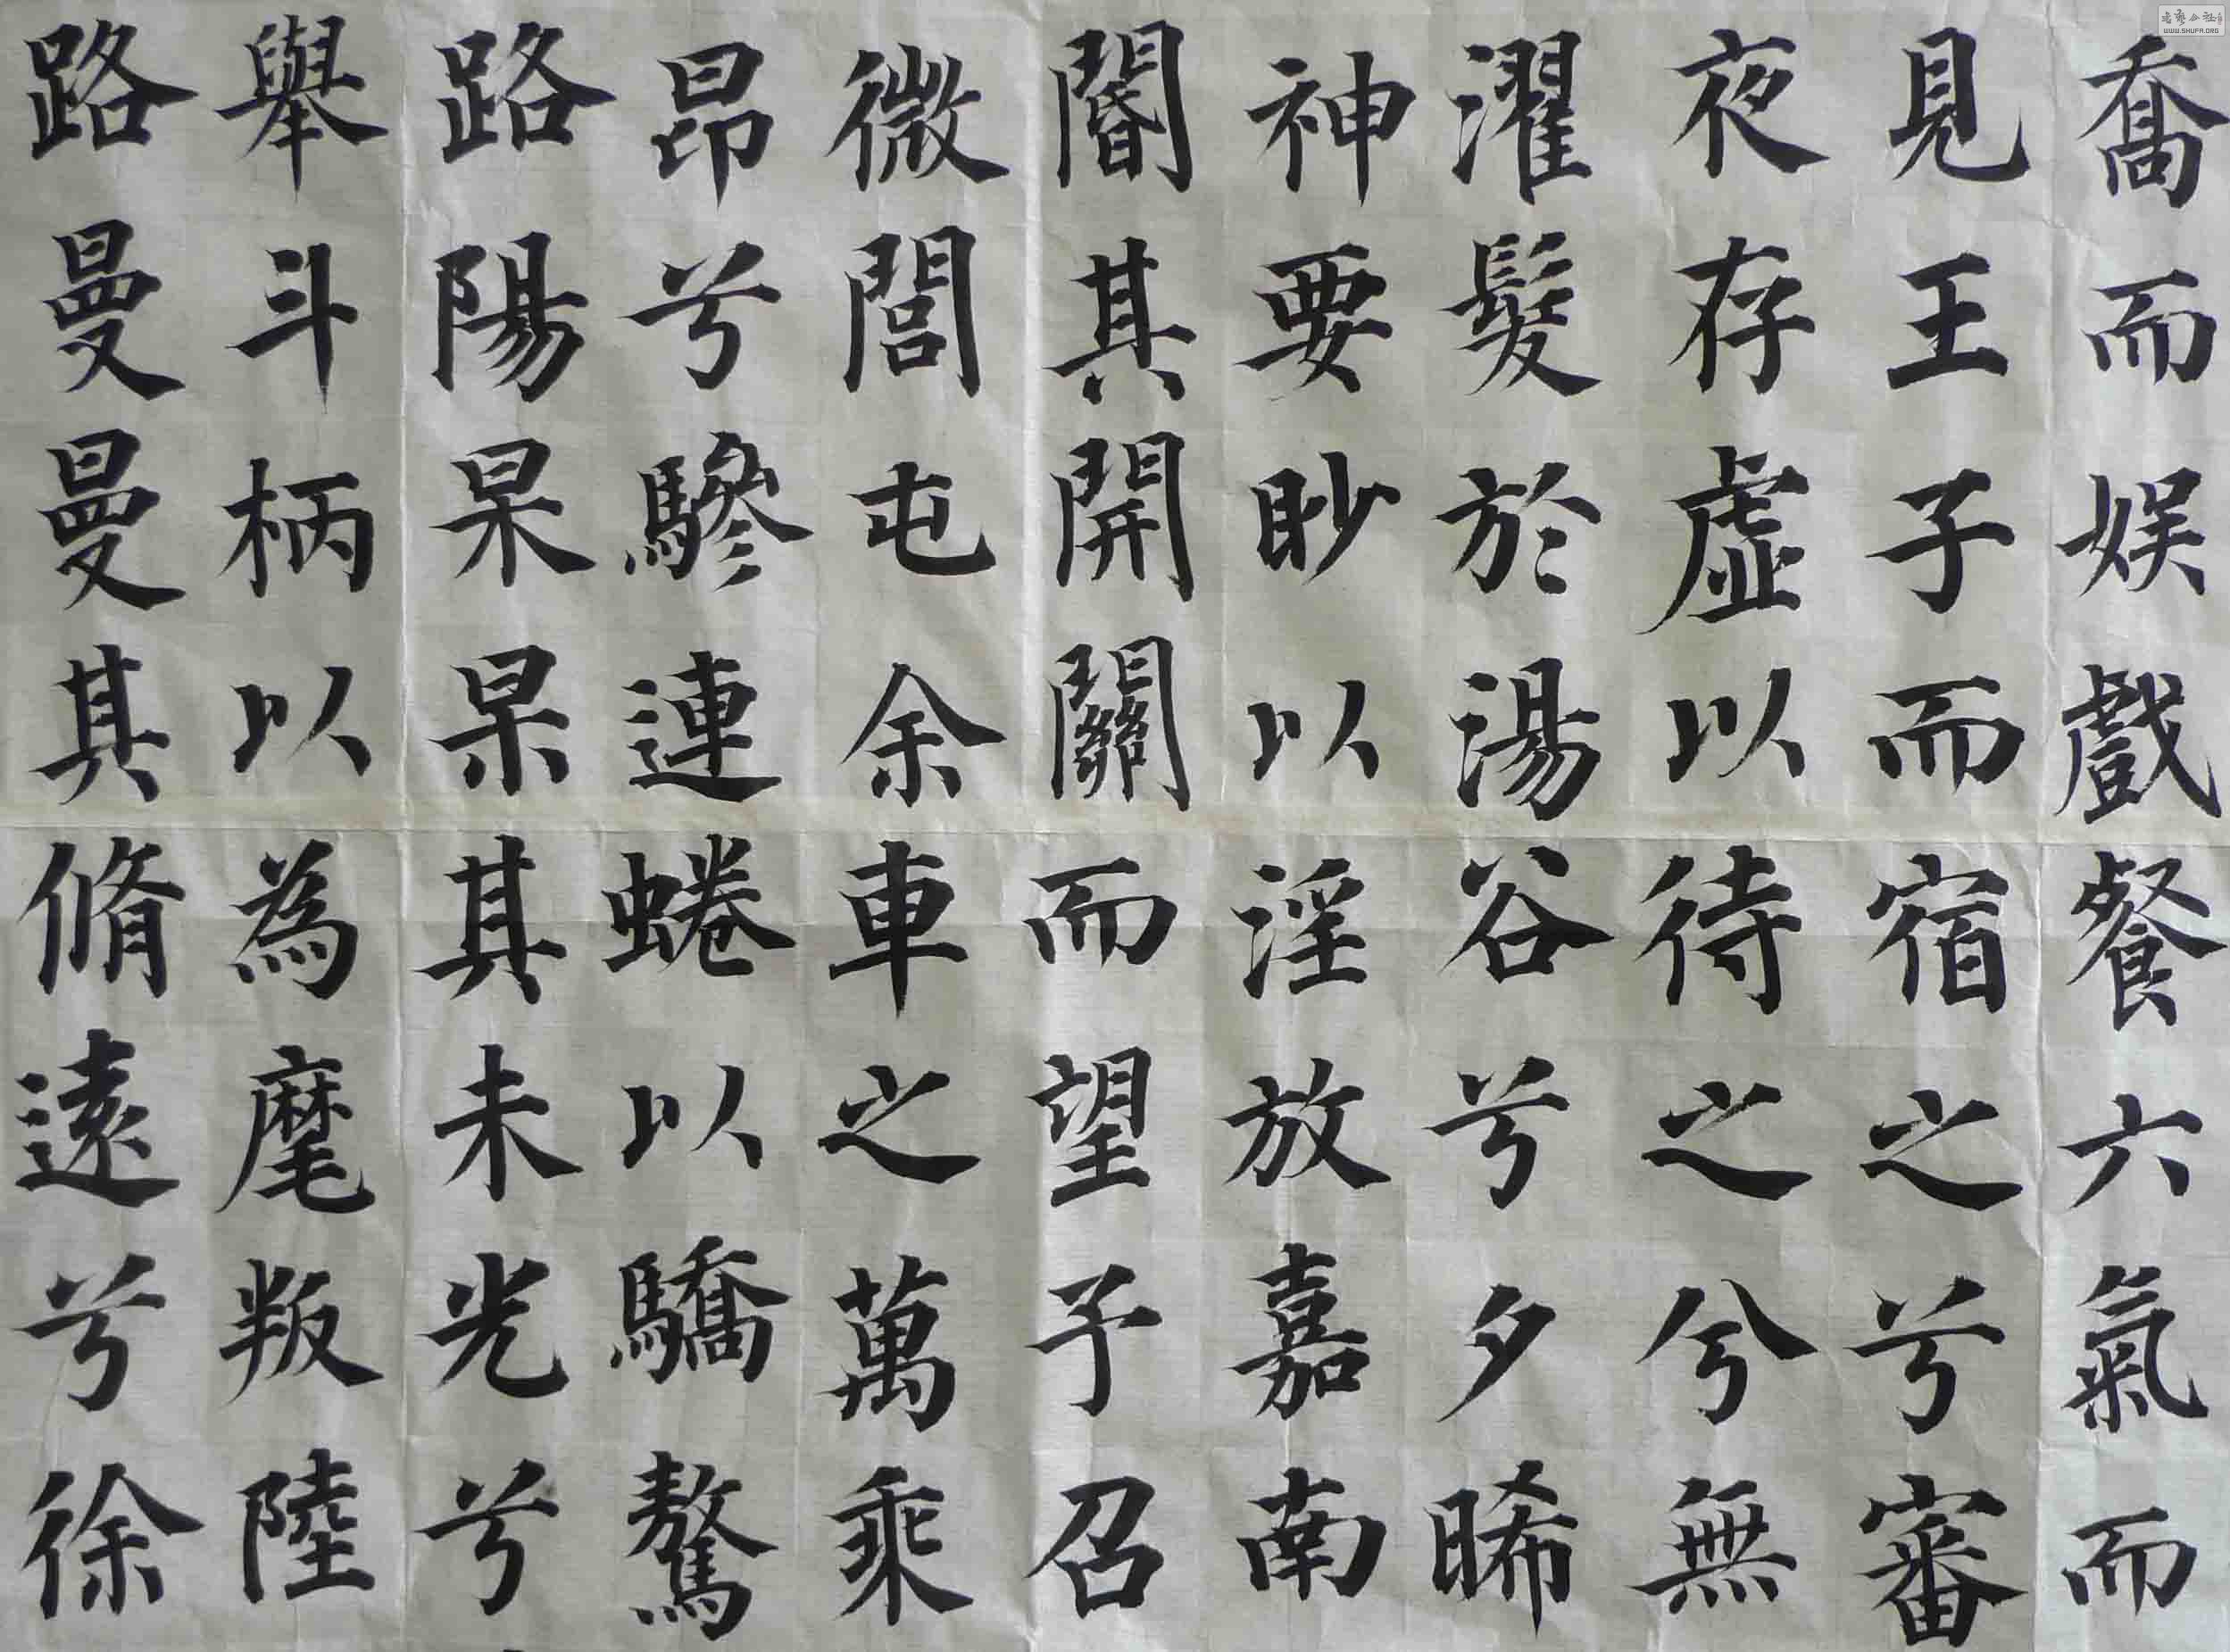 喬而娯戲餐六氣而
見王子而宿之兮審
夜存虛以待之兮無
濯髮於湯谷兮夕晞
神要眇以淫放嘉南
閽其開關而望予召
微閭屯余車之萬乘
昂兮驂連蜷以驕驁
路陽杲杲其未光兮
舉斗柄以為麾叛陸
路曼曼其脩遠兮徐
WWW.SHUFA.ORG